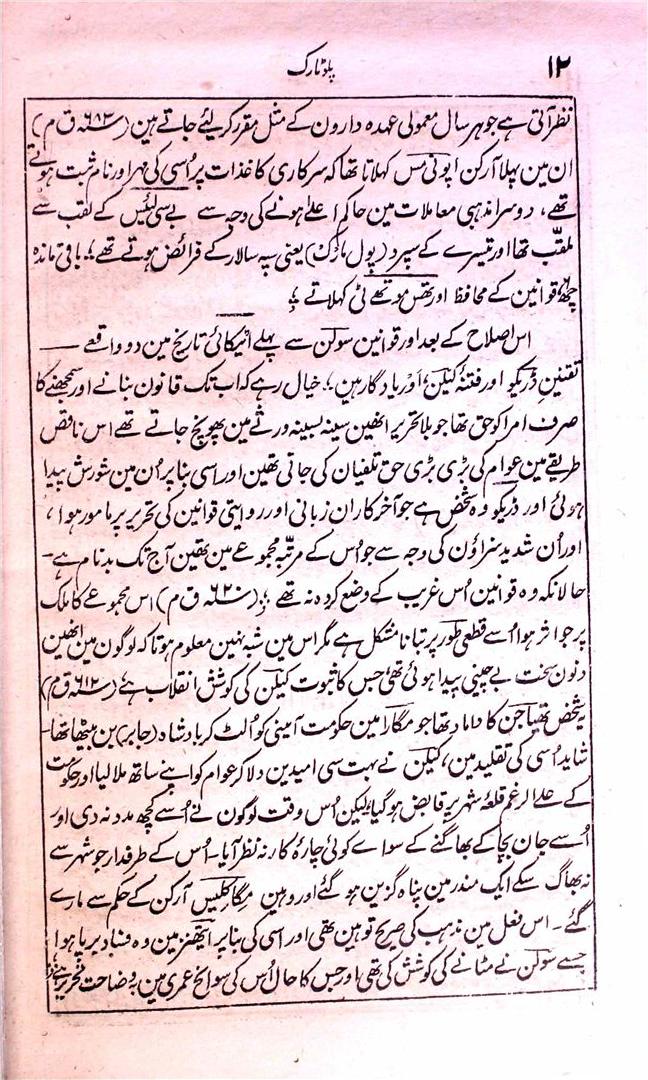 ۱۲
پلوٹارک
نظر آتی ہے جو ہر سال معمولی عہدہ دارون کے مثل مقرر کر لیئے جاتے ہین (سنہ ۶۸۲ ق م)
ان مین پہلا آرکن اپونی مس کہلاتا تھا کہ سرکاری کاغذات پر اُسی کی مہر اور نام ثبت ہوتے
تھے، دوسرا مذہبی معاملات مین حاکم اعلےٰ ہونے کی وجہ سے بے سی لئیس کے لقب سے
ملقّب تھا اور تیسرے کے سپرد (پول مارک) یعنی سپہ سالار کے فرائض ہوتے تھے، باقی ماندہ
چھ قوانین کے محافظ اور تھس موتھے ٹی کہلاتے
اس اصلاح کے بعد اور قوانین سولن سے پہلے اٹیکائی تاریخ مین دو واقعے —
تقنینِ ڈریکو اور فتنۂ کیلن، اور یادگار ہین، خیال رہے کہ اب تک قانون بنانے اور سمجھنے کا
صرف امرا کو حق تھا جو بلا تحریر انھین سینہ بسینہ ورثے مین پھونچ جاتے تھے اس ناقص
طریقے مین عوام کی بڑی بڑی حق تلفیان کی جاتی تھین اور اسی بنا پر اُن مین شورش پیدا
ہوئی اور ڈریکو وہ شخص ہے جو آخر کار ان زبانی اور روایتی قوانین کی تحریر پر مامور ہوا،
اور اُن شدید سزاؤن کی وجہ سے جو اُس کے مرتّبہ مجموعے مین تھین آج تک بدنام ہے۔
حالانکہ وہ قوانین اُس غریب کے وضع کردہ نہ تھے (سنہ ۶۲۰ ق م) اس مجموعے کا ملک
پر جو اثر ہوا اُسے قطعی طور پر بتانا مشکل ہے مگر اس مین شبہ نہین معلوم ہوتا کہ لوگون مین انھین
دنون سخت بے چینی پیدا ہوئی تھی جس کا ثبوت کیلن کی کوشش انقلاب ہے (سنہ ۶۱۲ ق م)
یہ شخص تھیاجن کا داماد تھا جو مگارا مین حکومت آئینی کو اُلٹ کر بادشاہ (جابر) بن بیٹھا تھا۔
شاید اُسی کی تقلید مین، کیلن نے بہت سی امیدین دلا کر عوام کو اپنے ساتھ ملا لیا اور حکومت
کے علے الرغم قلعۂ شہر پر قابض ہو گیا، لیکن اُس وقت لوگون نے اُسے کچھ مدد نہ دی اور
اُسے جان بچا کے بھاگنے کے سواے کوئی چارۂ کار نہ نظر آیا۔ اُس کے طرفدار جو شہر سے
نہ بھاگ سکے ایک مندر مین پناہ گزین ہو گئے اور وہین مگاکلیس آرکن کے حکم سے مارے
گئے۔ اس فعل مین مذہب کی صریح توہین تھی اور اسی کی بنا پر ایتھنز مین وہ فساد برپا ہوا
جسے سولن نے مٹانے کی کوشش کی تھی اور جس کا حال اُس کی سوانح عمری مین بہ وضاحت تحریر ہے